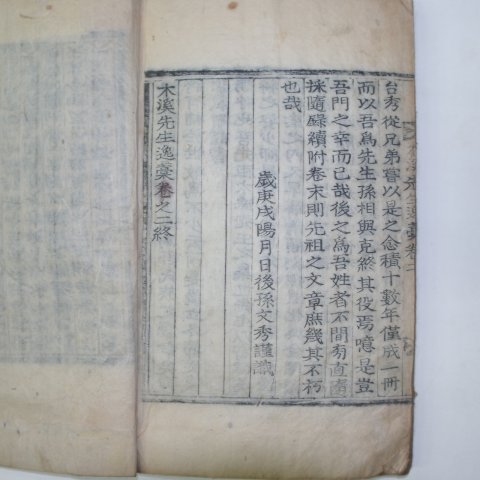 台秀從兄弟嘗以是之念積十數年僅成一冊
而以吾爲先生孫相與克終其役焉噫是豈
吾門之幸而已哉後之爲吾姓者不間有直
採隨錄續附卷末則先祖之文章庶幾其不朽
也哉
歲庚戌陽月日後孫文秀謹識
木溪先生逸稾卷之二終